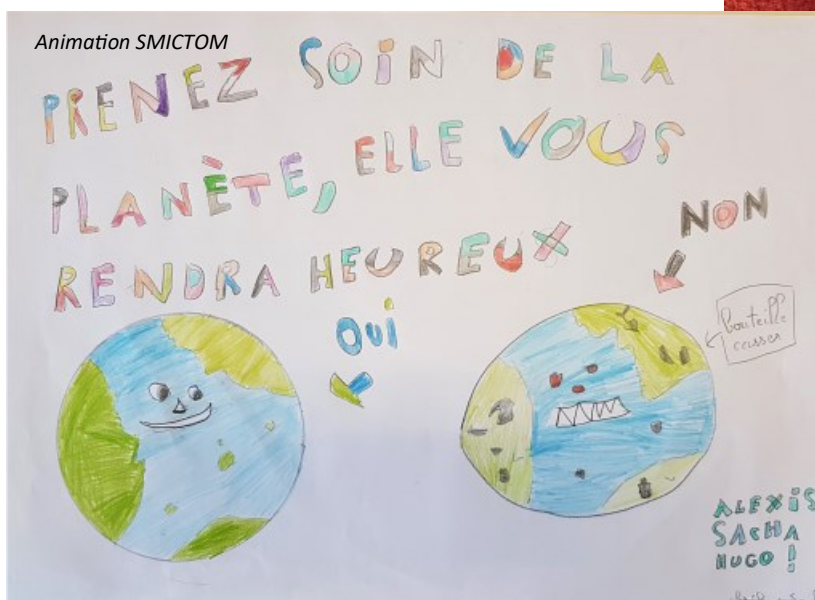 Animation SMICTOM
PRENEZ SOIN DE LA
PLANÈTE, ELLE VOUS
RENDRA HEUREUX
NON
OUI
bouteille
casser
ALEXIS
SACHA
HUGO !